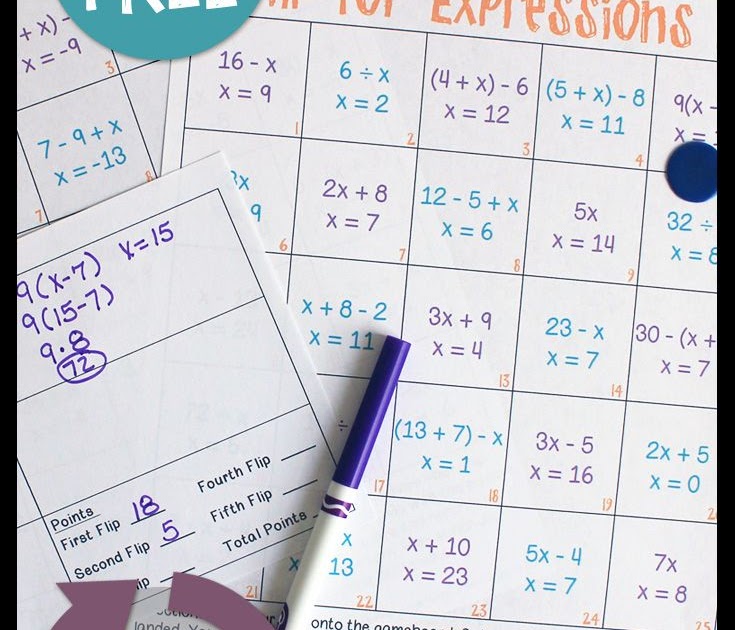 FREE
for Expressions
+ x) -
x = -9
3
7 - 9 + x
x = -13
8
7
16 - x
x = 9
1
6 ÷ x
x = 2
2
(4 + x) - 6
x = 12
3
(5 + x) - 8
x = 11
4
9(x -
x =
9
6
2x + 8
x = 7
7
12 - 5 + x
x = 6
8
5x
x = 14
9
32 ÷
x = 8
x + 8 - 2
x = 11
3x + 9
x = 4
13
23 - x
x = 7
14
30 - (x +
x = 7
÷
17
(13 + 7) - x
x = 1
18
3x - 5
x = 16
19
2x + 5
x = 0
21
x
x
13
22
x + 10
x = 23
23
5x - 4
x = 7
24
7x
x = 8
25
9(x-7) x=15
9(15-7)
9·8
72
Points
First Flip 18
Second Flip 5
Fourth Flip
Fifth Flip
Total Points
landed.
onto the gameboard